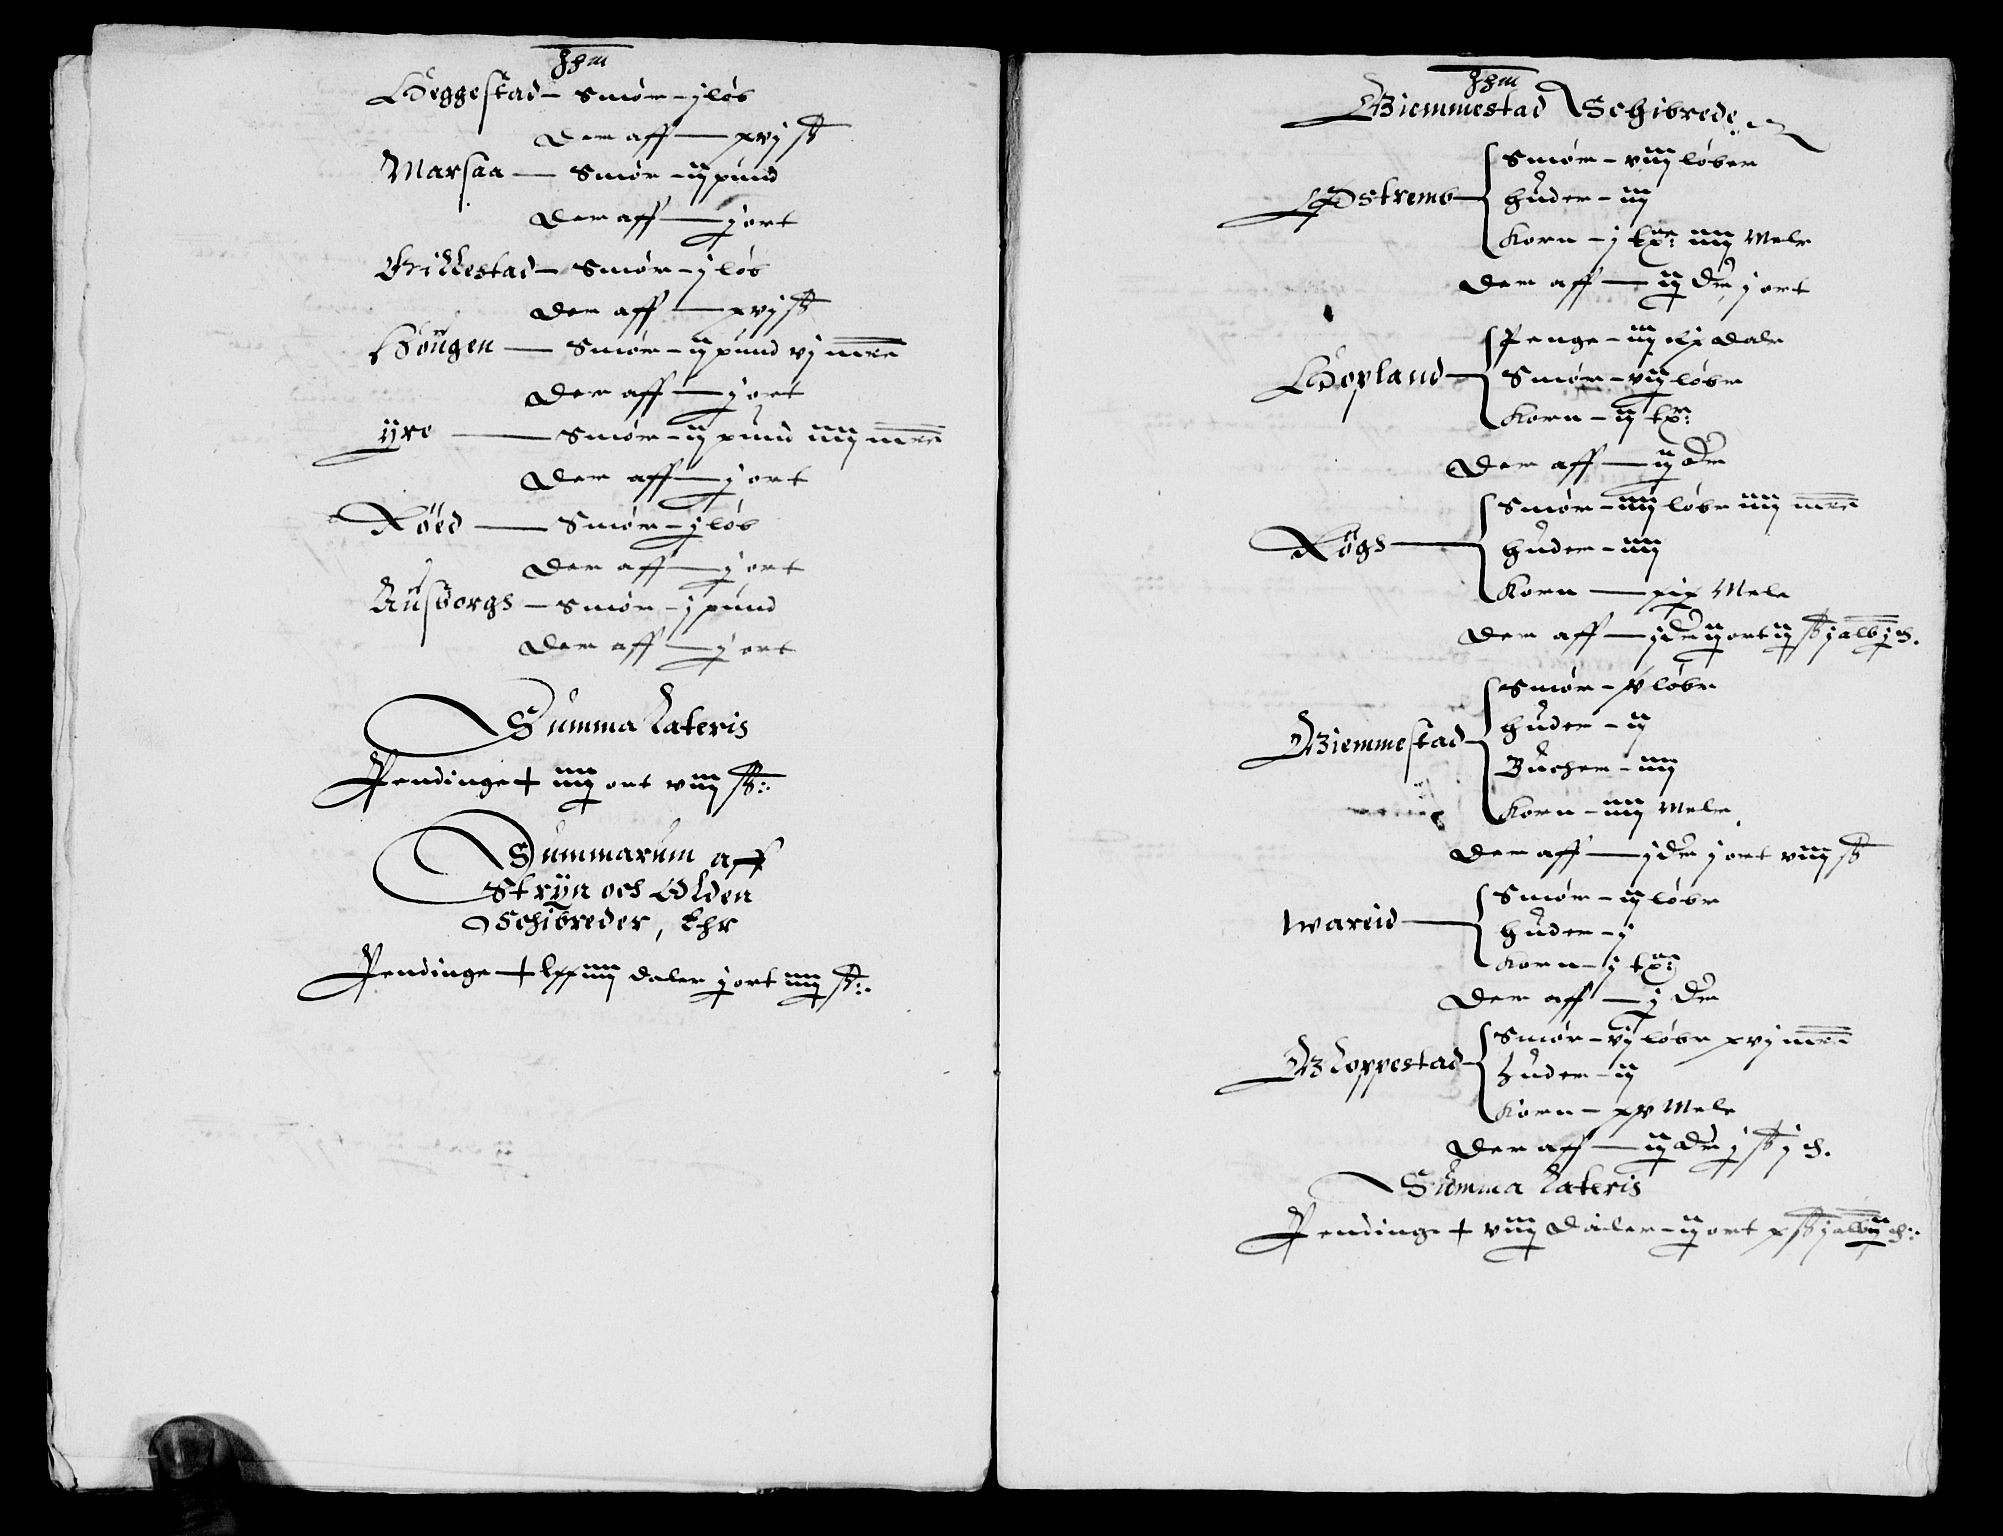 Heggestad – Smør – j løb
Der aff — xvj ß
Marsaa — Smør – ij pund
Der aff — j ort
Gillestad – Smør – j løb
Der aff — xvj ß
Höugen — Smør – ij pund vj mrc
Der aff — j ort
ÿre — Smør – ij pund iiij mrc
Der aff — j ort
Röed — Smør – j løb
Der aff — j ort
Ausborgs – Smør – j pund
Der aff — j ort
Summa Lateris
Pendinge + iiij ort viij ß:.
Summarum aff
Strÿn och Olden
Schibreder, Ehr
Pendinge + lxxiiij daler j ort iiij ß:.
Giemmestad Schibrede
Østremb
Smør – viij løber
huder – iij
Korn – j tr: iiij Mele
Der aff — ij dr j ort
Hopland
Penge – iij dale
Smør – vij løbe
Korn – ij tr:
Der aff — ij dr
Rögs
Smør – iiij løbe iiij mrc
huder – iiij
Korn — xix Mele
Der aff — j dr ij ort ij ß j alb j ch.
Giemmestad
Smør – x løbe
huder – ij
Bucher – iiij
Korn – iiij Mele
Der aff — j dr j ort viij ß
Wareid
Smør – iij løbe
huder – j
Korn – j tr:
Der aff — j dr
Gloppestad
Smør – vj løbe xvj mrc
huder – ij
Korn – xv Mele
Der aff — ij dr j ß j ch.
Summa Lateris
Pendinge + viij daler – ij ort x ß j alb ij ch:.